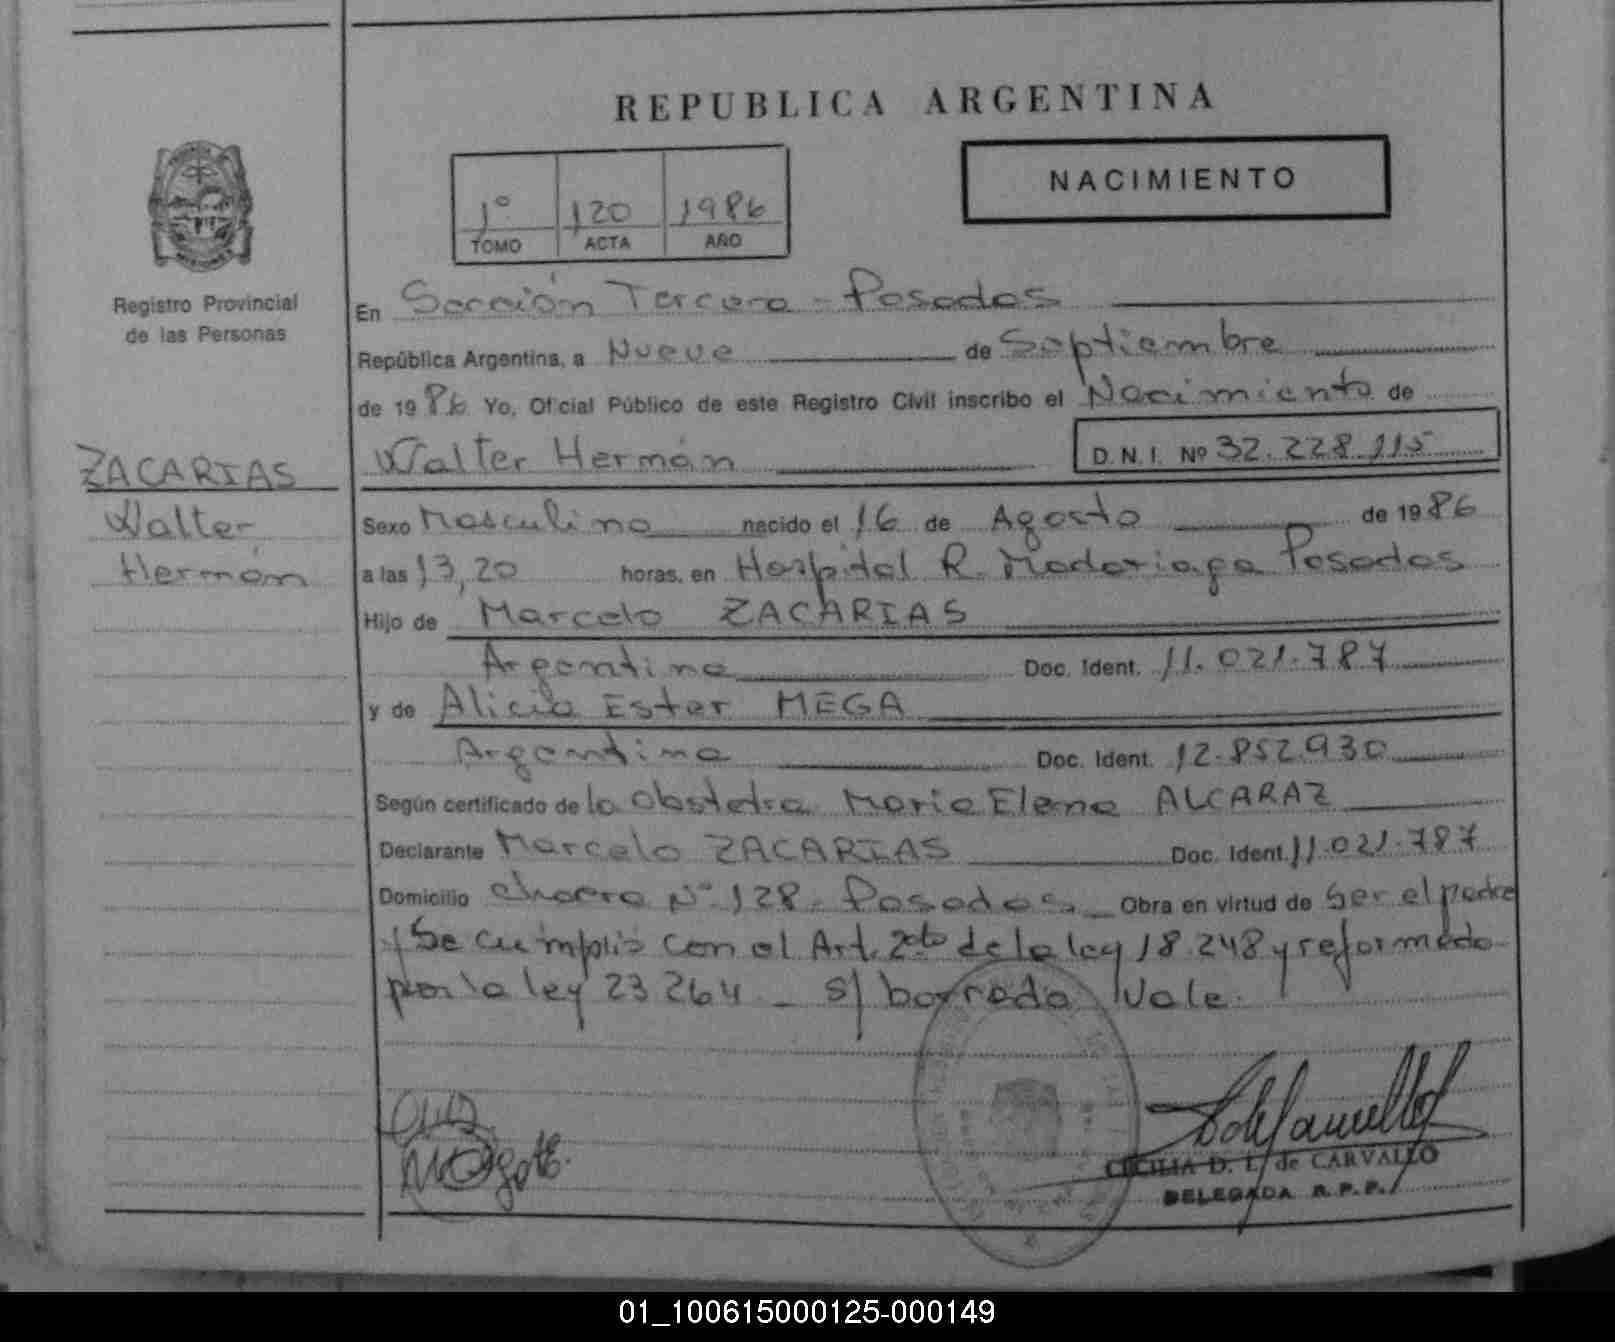 REPUBLICA ARGENTINA
NACIMIENTO
1º 120 1986
TOMO ACTA AÑO
Registro Provincial
de las Personas
En Sección Tercera - Posadas
República Argentina, a Nueve de Septiembre
de 1986 Yo, Oficial Público de este Registro Civil inscribo el Nacimiento de
Walter Hernán D.N.I. Nº 32.228.115
ZACARIAS
Walter
Hernán
Sexo Masculino nacido el 16 de Agosto de 1986
a las 13,20 horas, en Hospital R. Madariaga Posadas
Hijo de Marcelo ZACARIAS
Argentino Doc. Ident. 11.021.787
y de Alicia Ester MEGA
Argentina Doc. Ident. 12.852.930
Según certificado de la Obstetra Maria Elena ALCARAZ
Declarante Marcelo ZACARIAS Doc. Ident. 11.021.787
Domicilio Nº 128 - Posadas Obra en virtud de ser el padre
Se cumplió con el Art. 2do de la ley 18.248 y reformado
por la ley 23264 - s/ borrado Vale.
CECILIA D. L. de CARVALLO
DELEGADA R.P.P.
01_100615000125-000149